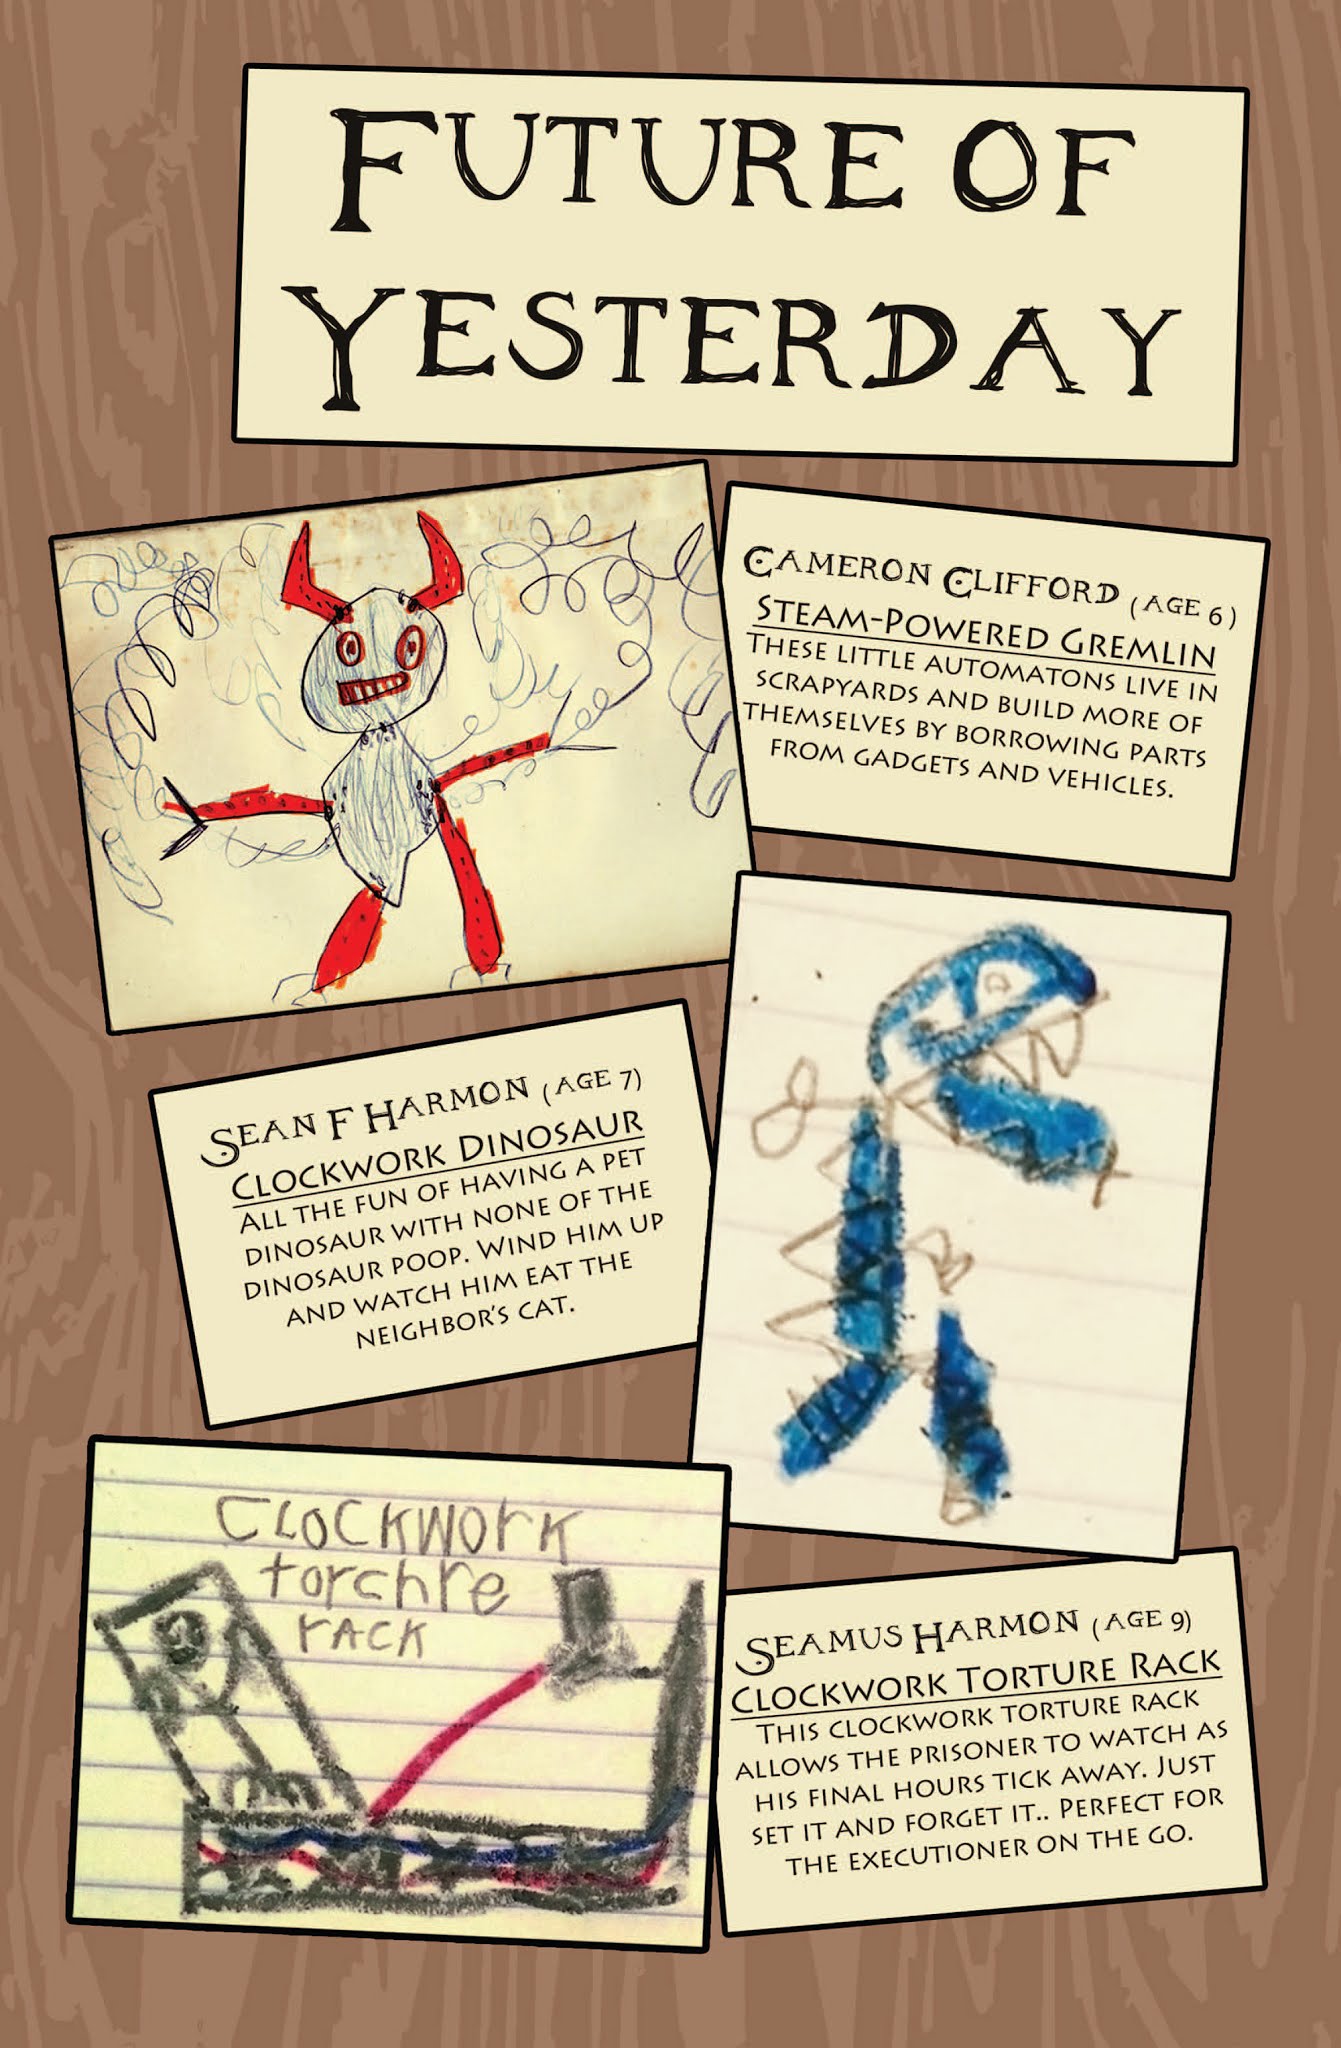 Future of
Yesterday
Cameron Clifford (age 6)
Steam-Powered Gremlin
These little automatons live in
scrapyards and build more of
themselves by borrowing parts
from gadgets and vehicles.
Sean F Harmon (age 7)
Clockwork Dinosaur
All the fun of having a pet
dinosaur with none of the
dinosaur poop. Wind him up
and watch him eat the
neighbor's cat.
Clockwork
torchre
rack
Seamus Harmon (age 9)
Clockwork Torture Rack
This clockwork torture rack
allows the prisoner to watch as
his final hours tick away. Just
set it and forget it.. Perfect for
the executioner on the go.